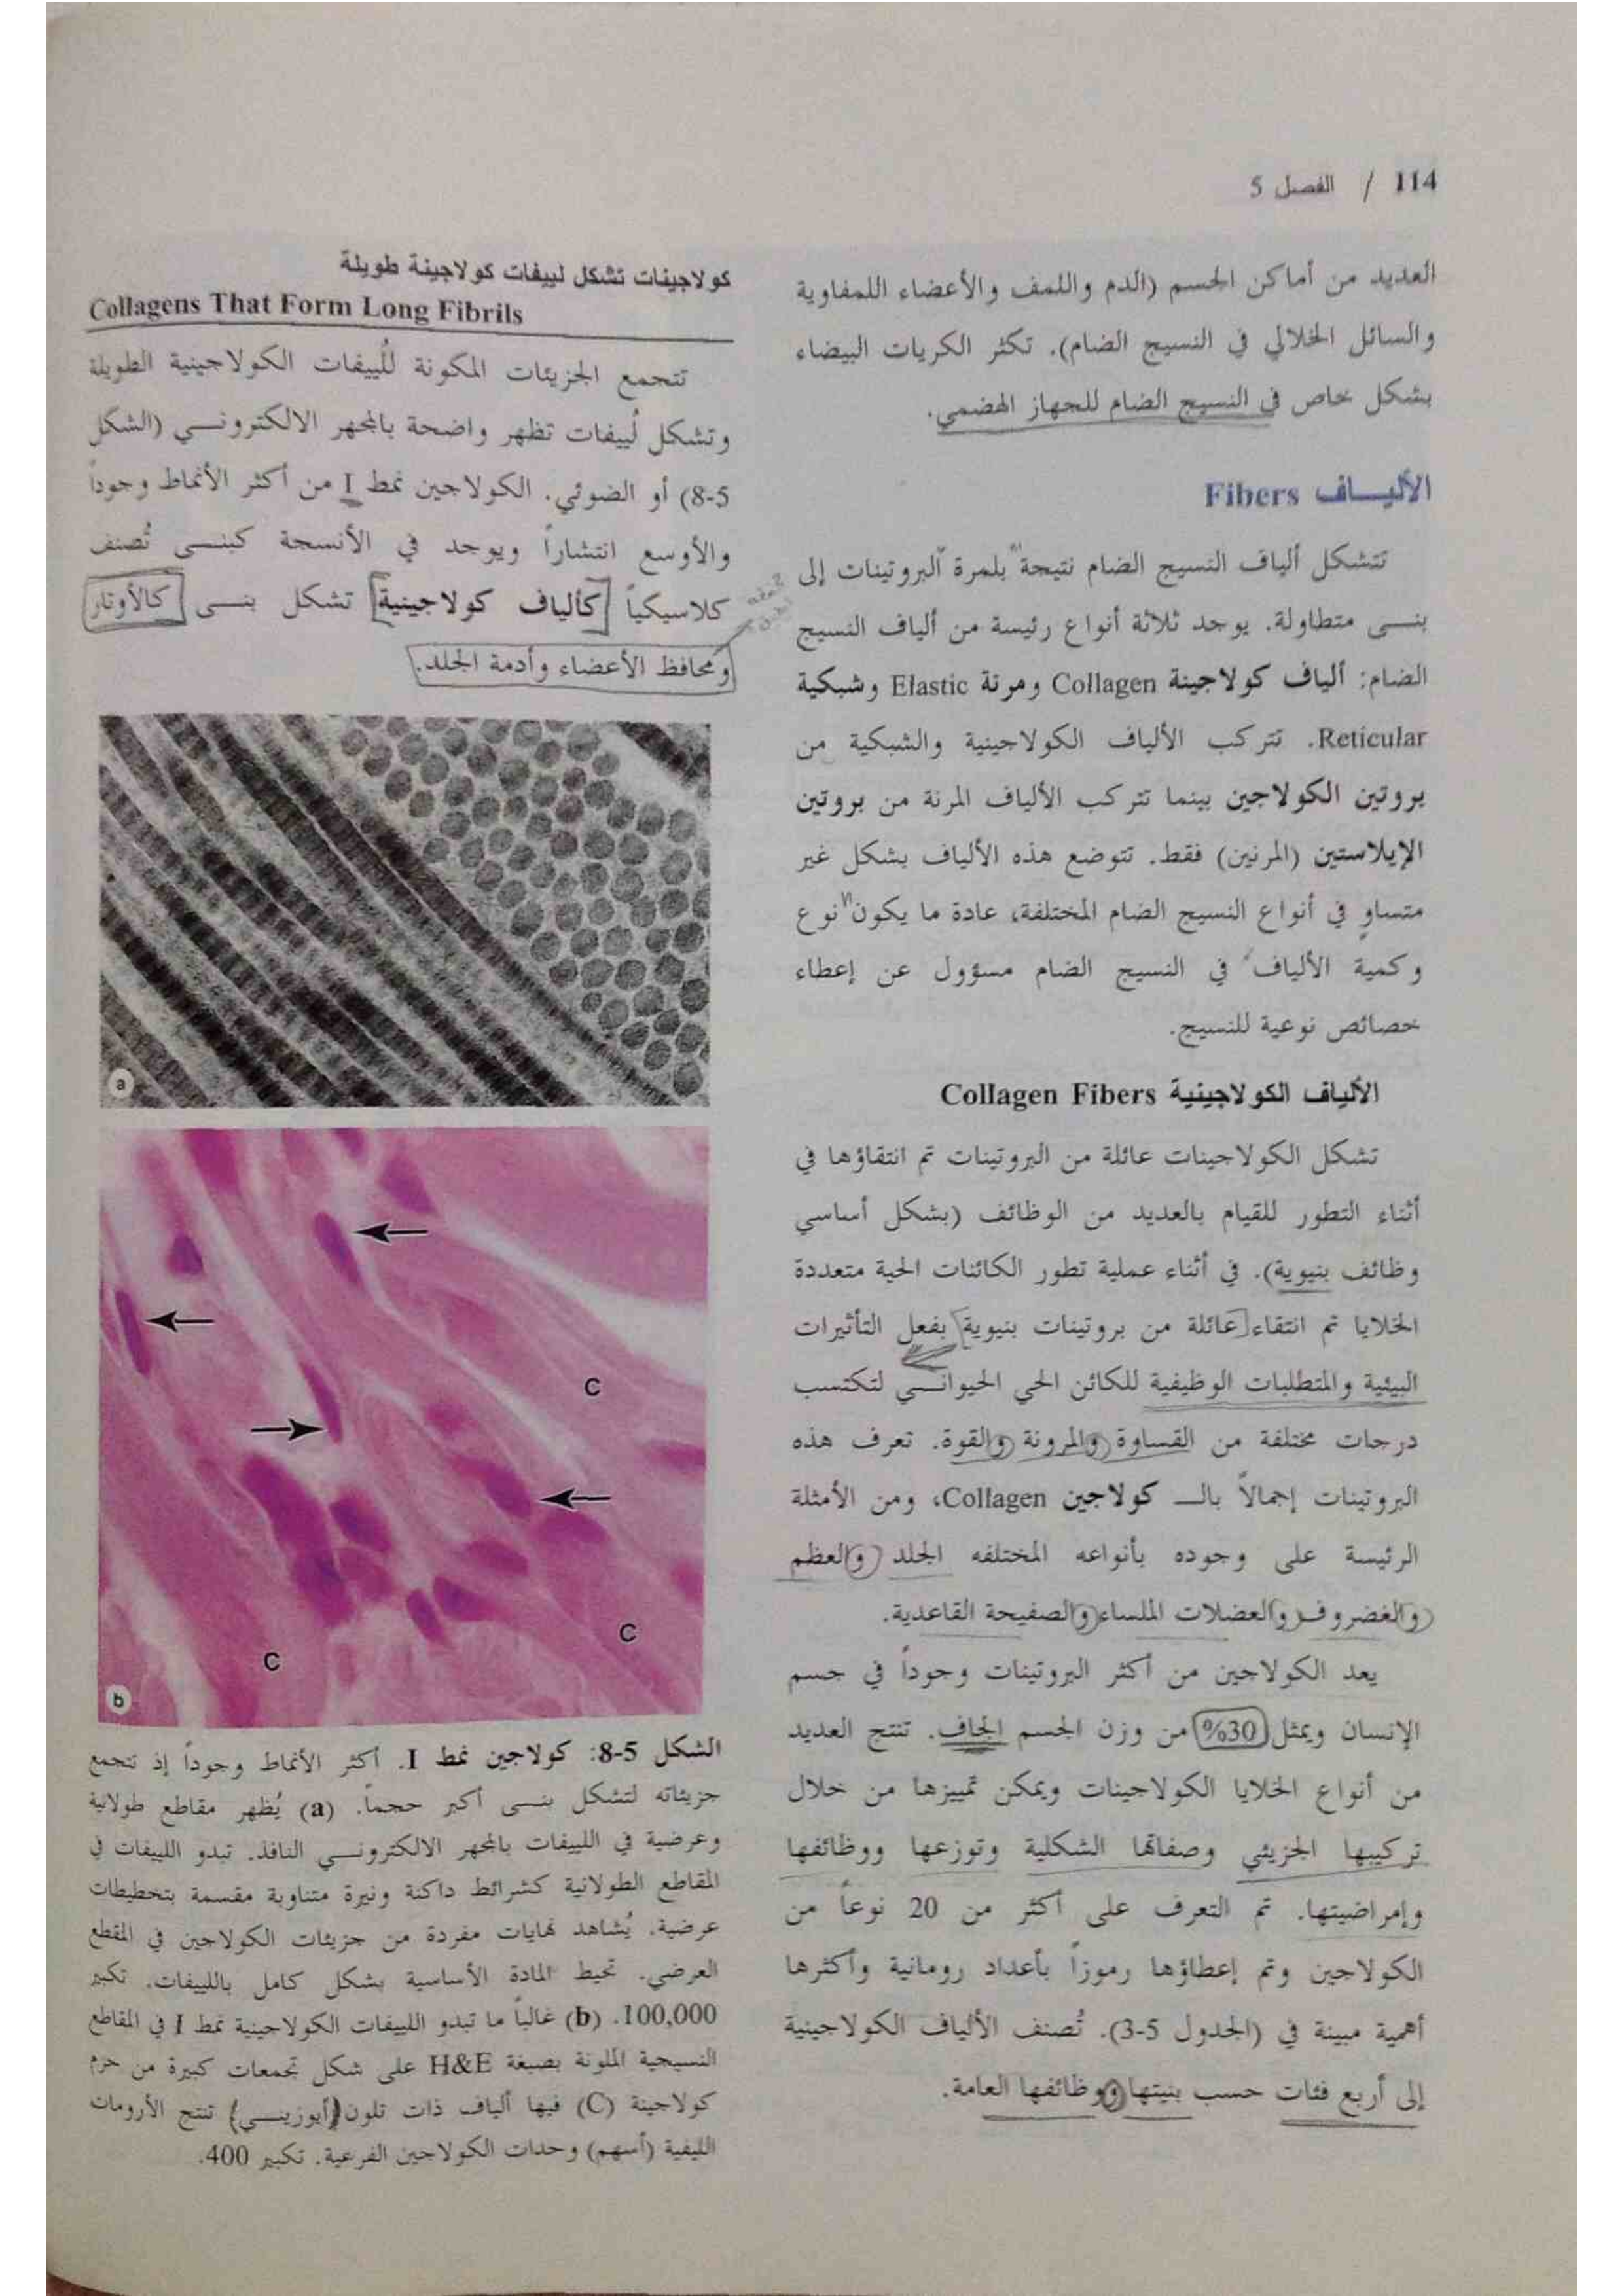 114 / الفصل 5
العديد من أماكن الجسم (الدم واللمف والأعضاء اللمفاوية
والسائل الخلالي في النسيج الضام). تكثر الكريات البيضاء
بشكل خاص في النسيج الضام للجهاز الهضمي.
الأليـــاف Fibers
تتشكل ألياف النسيج الضام نتيجة "بلمرة البروتينات إلى
بنـــى متطاولة. يوجد ثلاثة أنواع رئيسة من ألياف النسيج
الضام: ألياف كولاجينة Collagen ومرنة Elastic وشبكية
Reticular. تتركب الألياف الكولاجينية والشبكية من
بروتين الكولاجين بينما تتركب الألياف المرنة من بروتين
الإيلاستين (المرنين) فقط. تتوضع هذه الألياف بشكل غير
متساوٍ في أنواع النسيج الضام المختلفة، عادة ما يكون "نوع
وكمية الألياف" في النسيج الضام مسؤول عن إعطاء
خصائص نوعية للنسيج.
الألياف الكولاجينية Collagen Fibers
تشكل الكولاجينات عائلة من البروتينات تم انتقاؤها في
أثناء التطور للقيام بالعديد من الوظائف (بشكل أساسي
وظائف بنيوية). في أثناء عملية تطور الكائنات الحية متعددة
الخلايا تم انتقاء [عائلة من بروتينات بنيوية] بفعل التأثيرات
البيئية والمتطلبات الوظيفية للكائن الحي الحيوانـــي لتكتسب
درجات مختلفة من القساوة والمرونة والقوة. تعرف هذه
البروتينات إجمالاً بالـــ كولاجين Collagen، ومن الأمثلة
الرئيسة على وجوده بأنواعه المختلفه الجلد والعظم
والغضروف والعضلات الملساء والصفيحة القاعدية.
يعد الكولاجين من أكثر البروتينات وجوداً في جسم
الإنسان ويمثل 30% من وزن الجسم الجاف. تنتج العديد
من أنواع الخلايا الكولاجينات ويمكن تمييزها من خلال
تركيبها الجزيئي وصفاتها الشكلية وتوزعها ووظائفها
وإمراضيتها. تم التعرف على أكثر من 20 نوعاً من
الكولاجين وتم إعطاؤها رموزاً بأعداد رومانية وأكثرها
أهمية مبينة في (الجدول 5-3). تُصنف الألياف الكولاجينية
إلى أربع فئات حسب بنيتها ووظائفها العامة.
كولاجينات تشكل لييفات كولاجينة طويلة
Collagens That Form Long Fibrils
تتجمع الجزيئات المكونة للُييفات الكولاجينية الطويلة
وتشكل لُييفات تظهر واضحة بالمجهر الالكترونـــي (الشكل
5-8) أو الضوئي. الكولاجين نمط I من أكثر الأنماط وجوداً
والأوسع انتشاراً ويوجد في الأنسجة كبنـــى تُصنف
كلاسيكياً [كألياف كولاجينية] تشكل بنـــى كالأوتار
ومحافظ الأعضاء وأدمة الجلد.
a
C
C
C
b
الشكل 5-8: كولاجين نمط I. أكثر الأنماط وجوداً إذ تتجمع
جزيئاته لتشكل بنـــى أكبر حجماً. (a) يُظهر مقاطع طولانية
وعرضية في اللييفات بالمجهر الالكترونـــي النافذ. تبدو اللييفات في
المقاطع الطولانية كشرائط داكنة ونيرة متناوبة مقسمة بتخطيطات
عرضية. يُشاهد نهايات مفردة من جزيئات الكولاجين في المقطع
العرضي. تحيط المادة الأساسية بشكل كامل باللييفات. تكبير
100,000. (b) غالباً ما تبدو اللييفات الكولاجينية نمط I في المقاطع
النسيجية الملونة بصبغة H&E على شكل تجمعات كبيرة من حزم
كولاجينة (C) فيها ألياف ذات تلون (أيوزينـــي) تنتج الأرومات
الليفية (أسهم) وحدات الكولاجين الفرعية. تكبير 400.